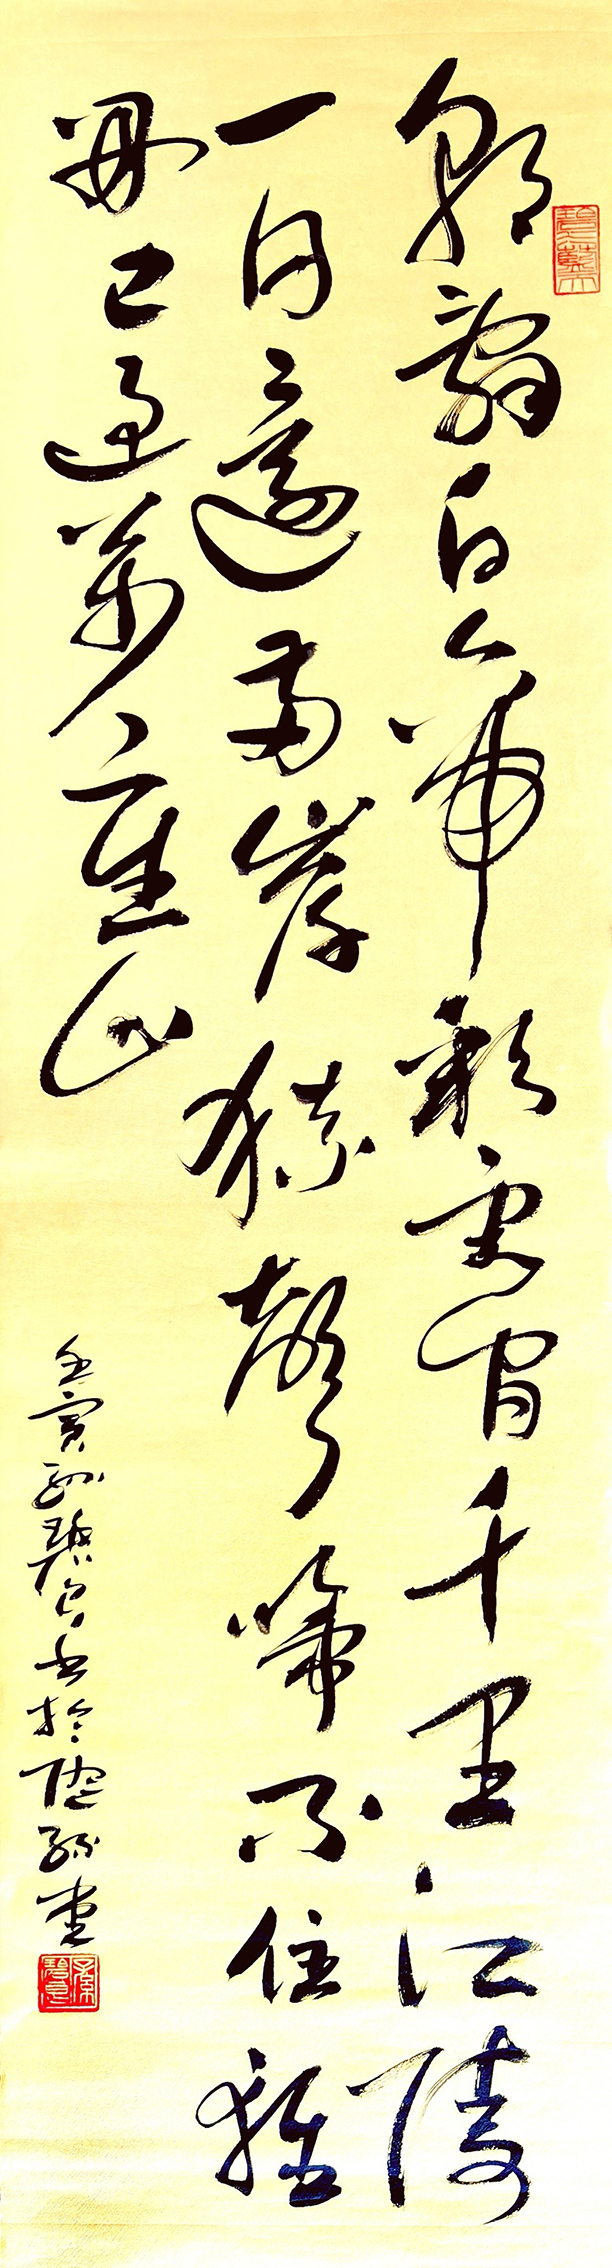 朝辭白帝彩雲間千里江陵
一日還兩岸猿聲啼不住輕
舟已過萬重山
壬寅孫碧書於堂